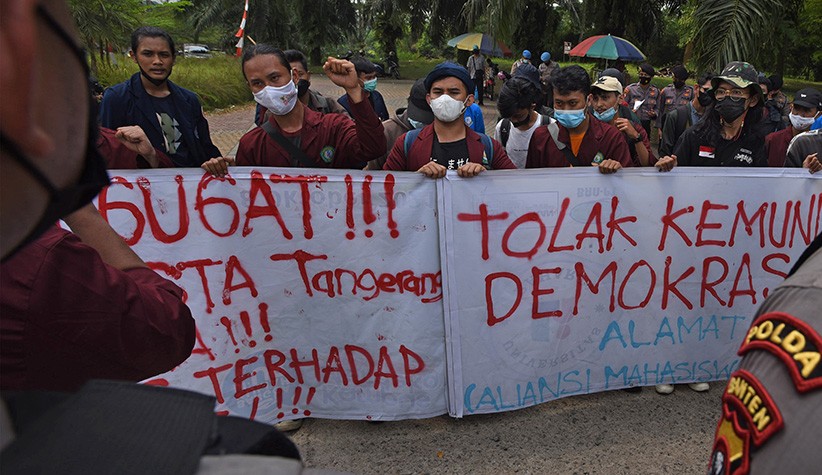 GUGAT !!!
TA Tangerang
!!!
TERHADAP
!!!
TOLAK KEMUN
DEMOKRAS
ALAMAT
(ALIANSI MAHASISW
POLDA
BANTEN